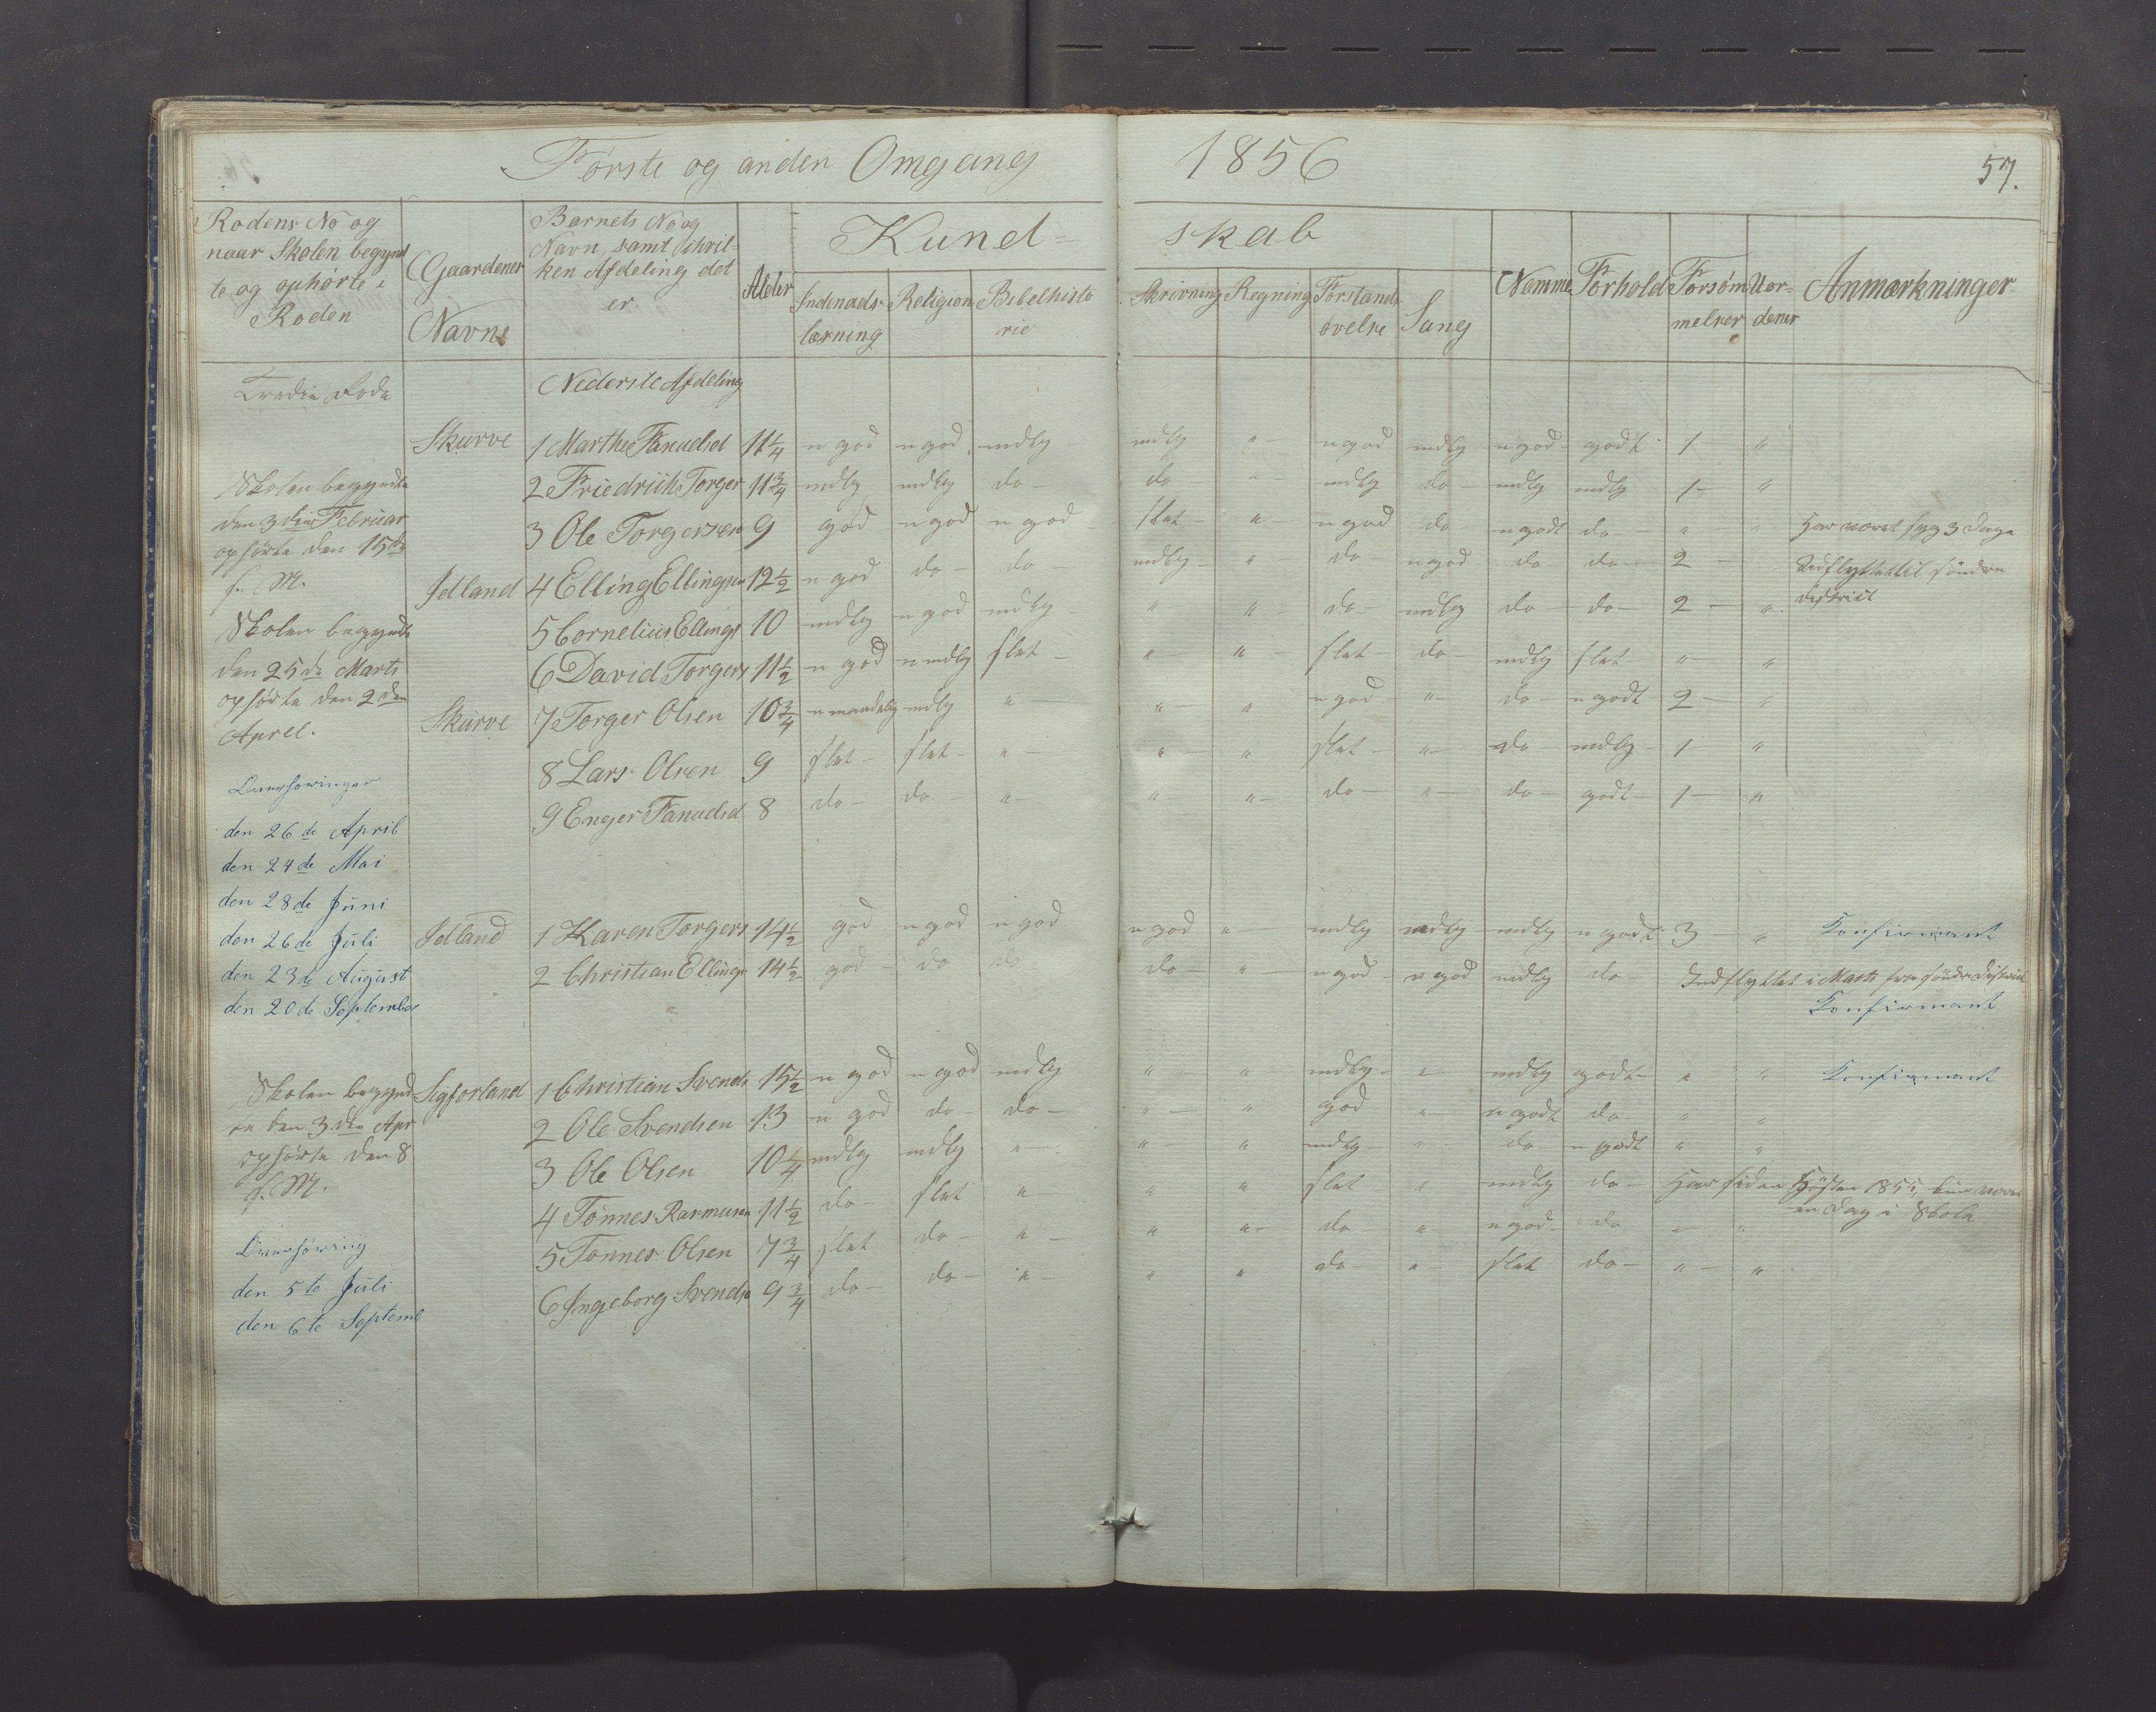 Første og anden Omgang 1856 57.
Rodens No og
naar Skolen begynd
te og ophørte i
Roden
Gaardenes
Navne
Barnets No og
Navn, samt ihvil-
ken Afdeling det
er.
Alder
Kund- skab
Indenads
læsning
Religion
Bibelhisto
rie
Skrivning
Regning
Forstands
øvelse
Sang
Nemme
Forhold
Forsøm
melser
Uor-
dener
Anmærkninger
Tredie Rode Nederste Afdeling
Skurve 1 Marthe Tanudsd 11 1/4 n god n god mdlg - mdlg " - n god mdlg n god - godt 1 - "
2 Friedrich Torger 11 3/4 mdlg mdlg do - do " mdlg do - mdlg mdlg 1 - "
3 Ole Torgersen 9 god n god n god slet " n god do n godt do - " " Har været syg 3 Dage
Idland 4 Elling Ellingsen 12 1/2 n god do - do - mdlg - " do - n god do do - 2 - Udflyttet til søndre
District
5 Cornelius Ellings 10 mdlg n god mdlg - " " - do - mdlg do - do - 2 - "
6 David Torgers 11 1/2 n god n mdlg slet - " - " - slet - do - mdlg slet " - "
Skurve 7 Torger Olsen 10 3/4 n maadelig mdlg " - " - " n god - " - do - n godt 2 - "
8 Lars Olsen 9 slet - slet - " - " - " slet - " - do mdlg - 1 "
9 Enger Tanudsd 8 do - do - " - " - " - do - " - do - godt - 1 - "
Skolen begyndte
den 3die Februar
ophørte den 15de
s. M.
Skolen begyndte
den 25de Marts
ophørte den 2den
Aprel.
Overhøringer
den 26de April
den 24de Mai
den 28de Juni
den 26de Juli
den 23de August
den 20de September
Idland 1 Karen Torgers 14 1/2 god n god n god n god " - mdlg mdlg - mdlg n godt 3 - " Konfirmant
2 Christian Ellings 14 1/2 god - do do do - " n god - n god mdlg do Indflyttet i Marts fra søndre District
Konfirmant
Skolen begynd
te den 3die Apr
ophørte den 8
s. M.
Sigforland 1 Christian Svends 15 1/2 n god n god mdlg " - " mdlg - " - mdlg godt - " " Konfirmant
2 Ole Svendsen 13 n god do - do - " - " god " - n godt do - " "
3 Ole Olsen 10 1/4 mdlg mdlg " - " - " mdlg " - do n godt " "
4 Tønnes Rasmusen 11 1/2 do - slet " " " slet " mdlg do - Har siden Høsten 1855, kun været
en Dag i Skole
5 Tønnes Olsen 7 3/4 slet do - " - " " - do " - n god - do " - "
6 Ingeborg Svends 9 3/4 do - do - " - " " do - " - slet do - " - "
Overhøring
den 5te Juli
den 6te Septemb